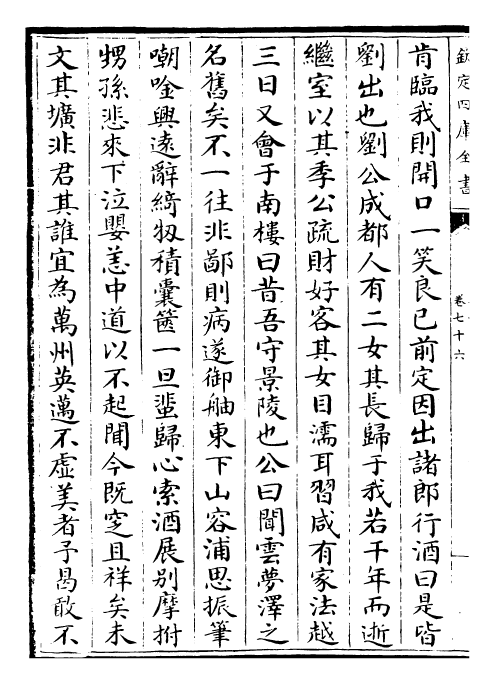 欽定四庫全書
卷七十六
肯臨我則開口一笑良已前定因出諸郎行酒曰是皆
劉出也劉公成都人有二女其長歸于我若干年而逝
繼室以其季公疏財好客其女目濡耳習咸有家法越
三日又會于南樓曰昔吾守景陵也公曰聞雲夢澤之
名舊矣不一往非鄙則病遂御舳東下山容浦思振筆
嘲唫興遠辭綺物積囊篋一旦蜚歸心索酒展别摩拊
甥孫悲來下泣嬰恙中道以不起聞今既窆且祥矣未
文其壙非君其誰宜為萬州英邁不虚美者予曷敢不